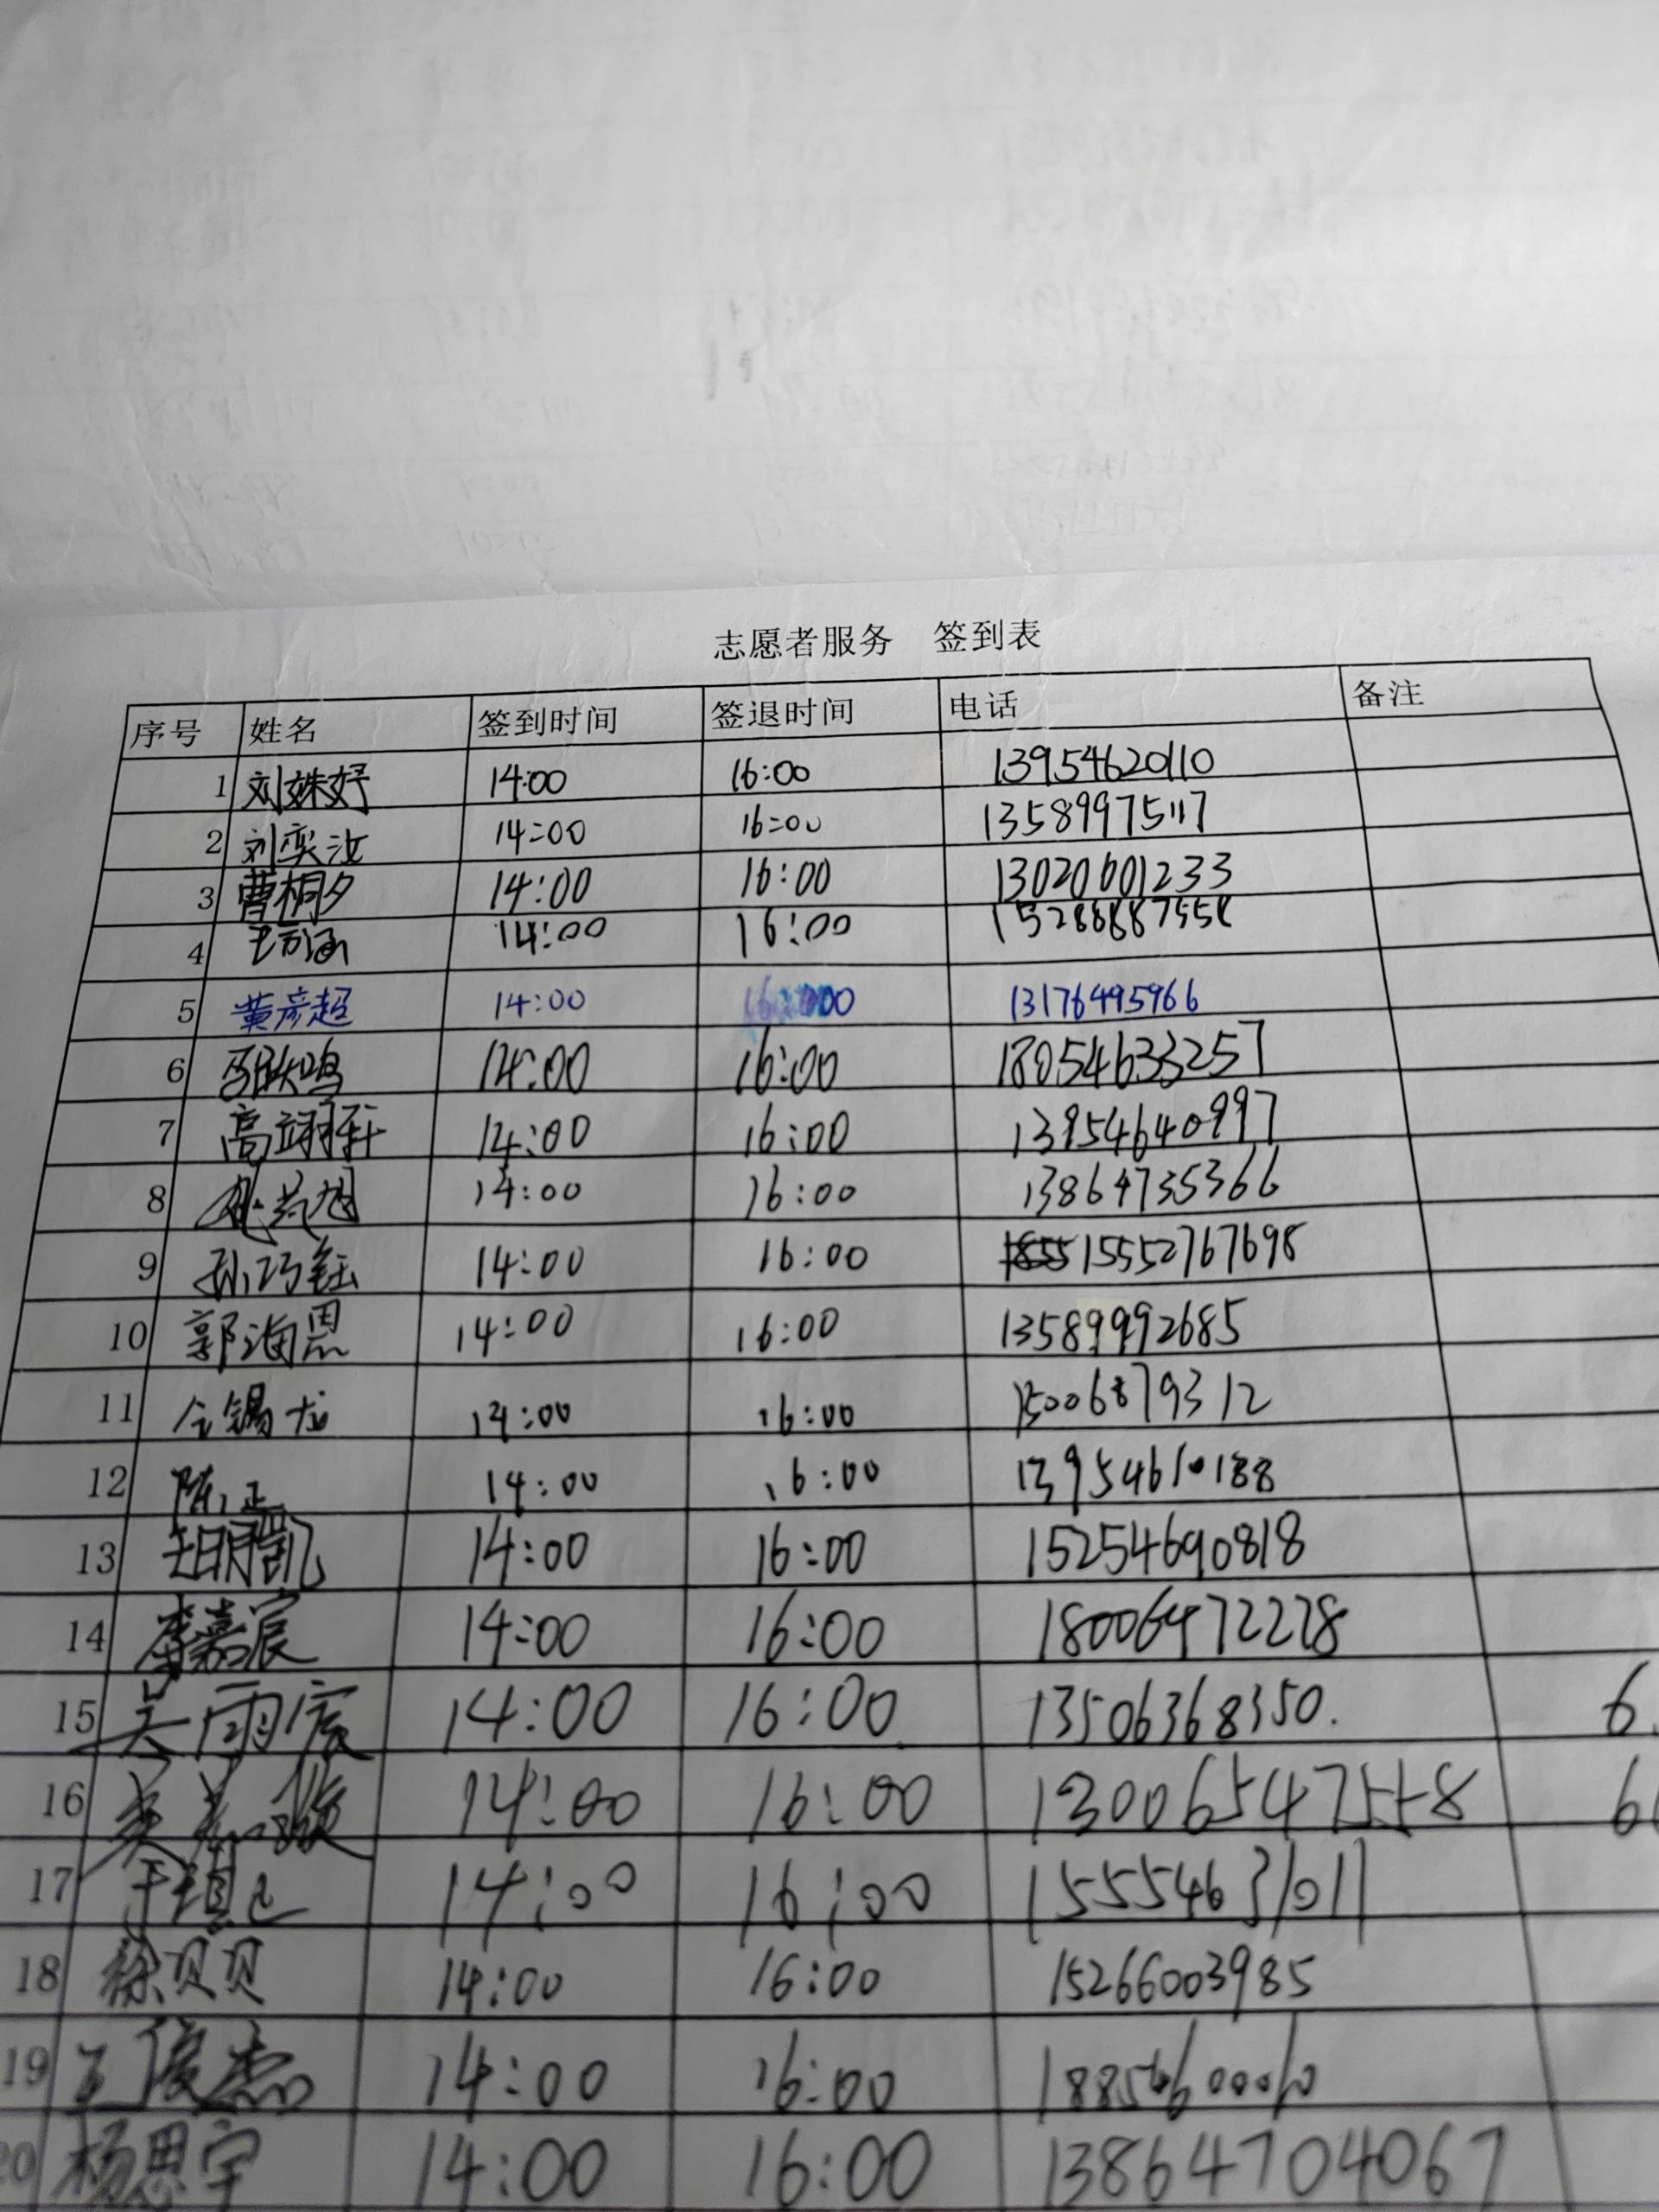 志愿者服务 签到表
序号 姓名 签到时间 签退时间 电话 备注
1 刘姝妤 14:00 16:00 13954620110
2 刘奕汝 14:00 16:00 13589975117
3 曹桐夕 14:00 16:00 13020601233
4 14:00 16:00
5 黄彦超 14:00 16:00 13176495966
6 14:00 16:00 18054633257
7 高翊轩 14:00 16:00 13954640997
8 14:00 16:00 13864735366
9 孙巧钰 14:00 16:00 15552767698
10 郭海恩 14:00 16:00 13589992685
11 仝锡龙 14:00 16:00 15006879312
12 陈正 14:00 16:00 13954610188
13 14:00 16:00 15254690818
14 李嘉宸 14:00 16:00 18006472228
15 吴雨宸 14:00 16:00 13506368350.
16 14:00 16:00 13006547558
17 14:00 16:00 15554631011
18 徐贝贝 14:00 16:00 15266003985
19 王俊杰 14:00 16:00
20 杨思宇 14:00 16:00 13864704067